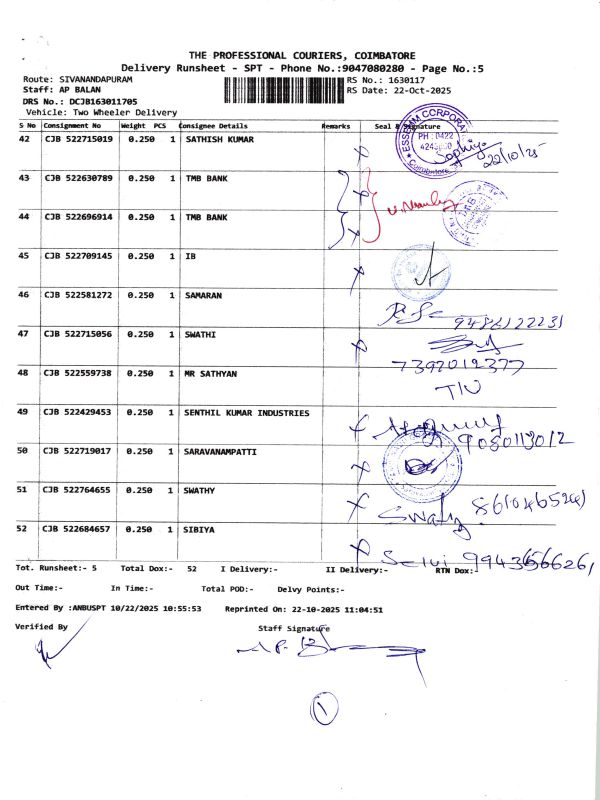 THE PROFESSIONAL COURIERS, COIMBATORE
Delivery Runsheet - SPT - Phone No.:9047080280 - Page No.:5
Route: SIVANANDAPURAM RS No.: 1630117
Staff: AP BALAN RS Date: 22-Oct-2025
DRS No.: DCJB163011705
Vehicle: Two Wheeler Delivery
S No Consignment No Weight PCS Consignee Details Remarks Seal & Signature
42 CJB 522715019 0.250 1 SATHISH KUMAR
ESSTEAM CORPORA
PH : 0422
Coimbatore
22/10/25
43 CJB 522630789 0.250 1 TMB BANK
44 CJB 522696914 0.250 1 TMB BANK
45 CJB 522709145 0.250 1 IB
46 CJB 522581272 0.250 1 SAMARAN
9486122231
47 CJB 522715056 0.250 1 SWATHI
7397012377
48 CJB 522559738 0.250 1 MR SATHYAN
49 CJB 522429453 0.250 1 SENTHIL KUMAR INDUSTRIES
50 CJB 522719017 0.250 1 SARAVANAMPATTI
51 CJB 522764655 0.250 1 SWATHY
Swathy
52 CJB 522684657 0.250 1 SIBIYA
Selvi
Tot. Runsheet:- 5 Total Dox:- 52 I Delivery:- II Delivery:- RTN Dox:
Out Time:- In Time:- Total POD:- Delvy Points:-
Entered By :ANBUSPT 10/22/2025 10:55:53 Reprinted On: 22-10-2025 11:04:51
Verified By Staff Signature
1